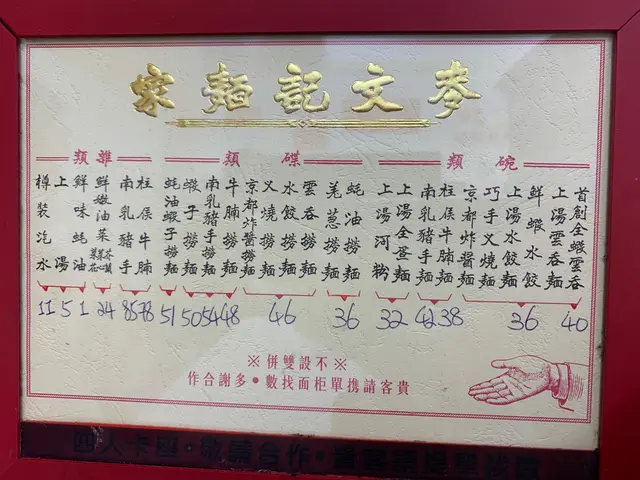 麥文記麵家
碗類
首創全蝦雲吞
40
上湯雲吞麵
鮮蝦水餃
上湯水餃麵
巧手叉燒麵
京都炸醬麵
36
柱侯牛腩麵
38
南乳豬手麵
42
上湯全蛋麵
上湯河粉
32
碟類
蚝油撈麵
羗葱撈麵
36
雲吞撈麵
水餃撈麵
叉燒撈麵
京都炸醬撈麵
46
牛腩撈麵
48
南乳豬手撈麵
54
蝦子撈麵
50
蚝油蝦子撈麵
51
雜類
柱侯牛腩
78
南乳豬手
85
鮮嫩油菜
24
鮮味蚝油
1
上湯
5
樽裝汽水
11
※不設雙併※
貴客請携單柜面找數•多謝合作
四人卡座•敬請合作•貴客請